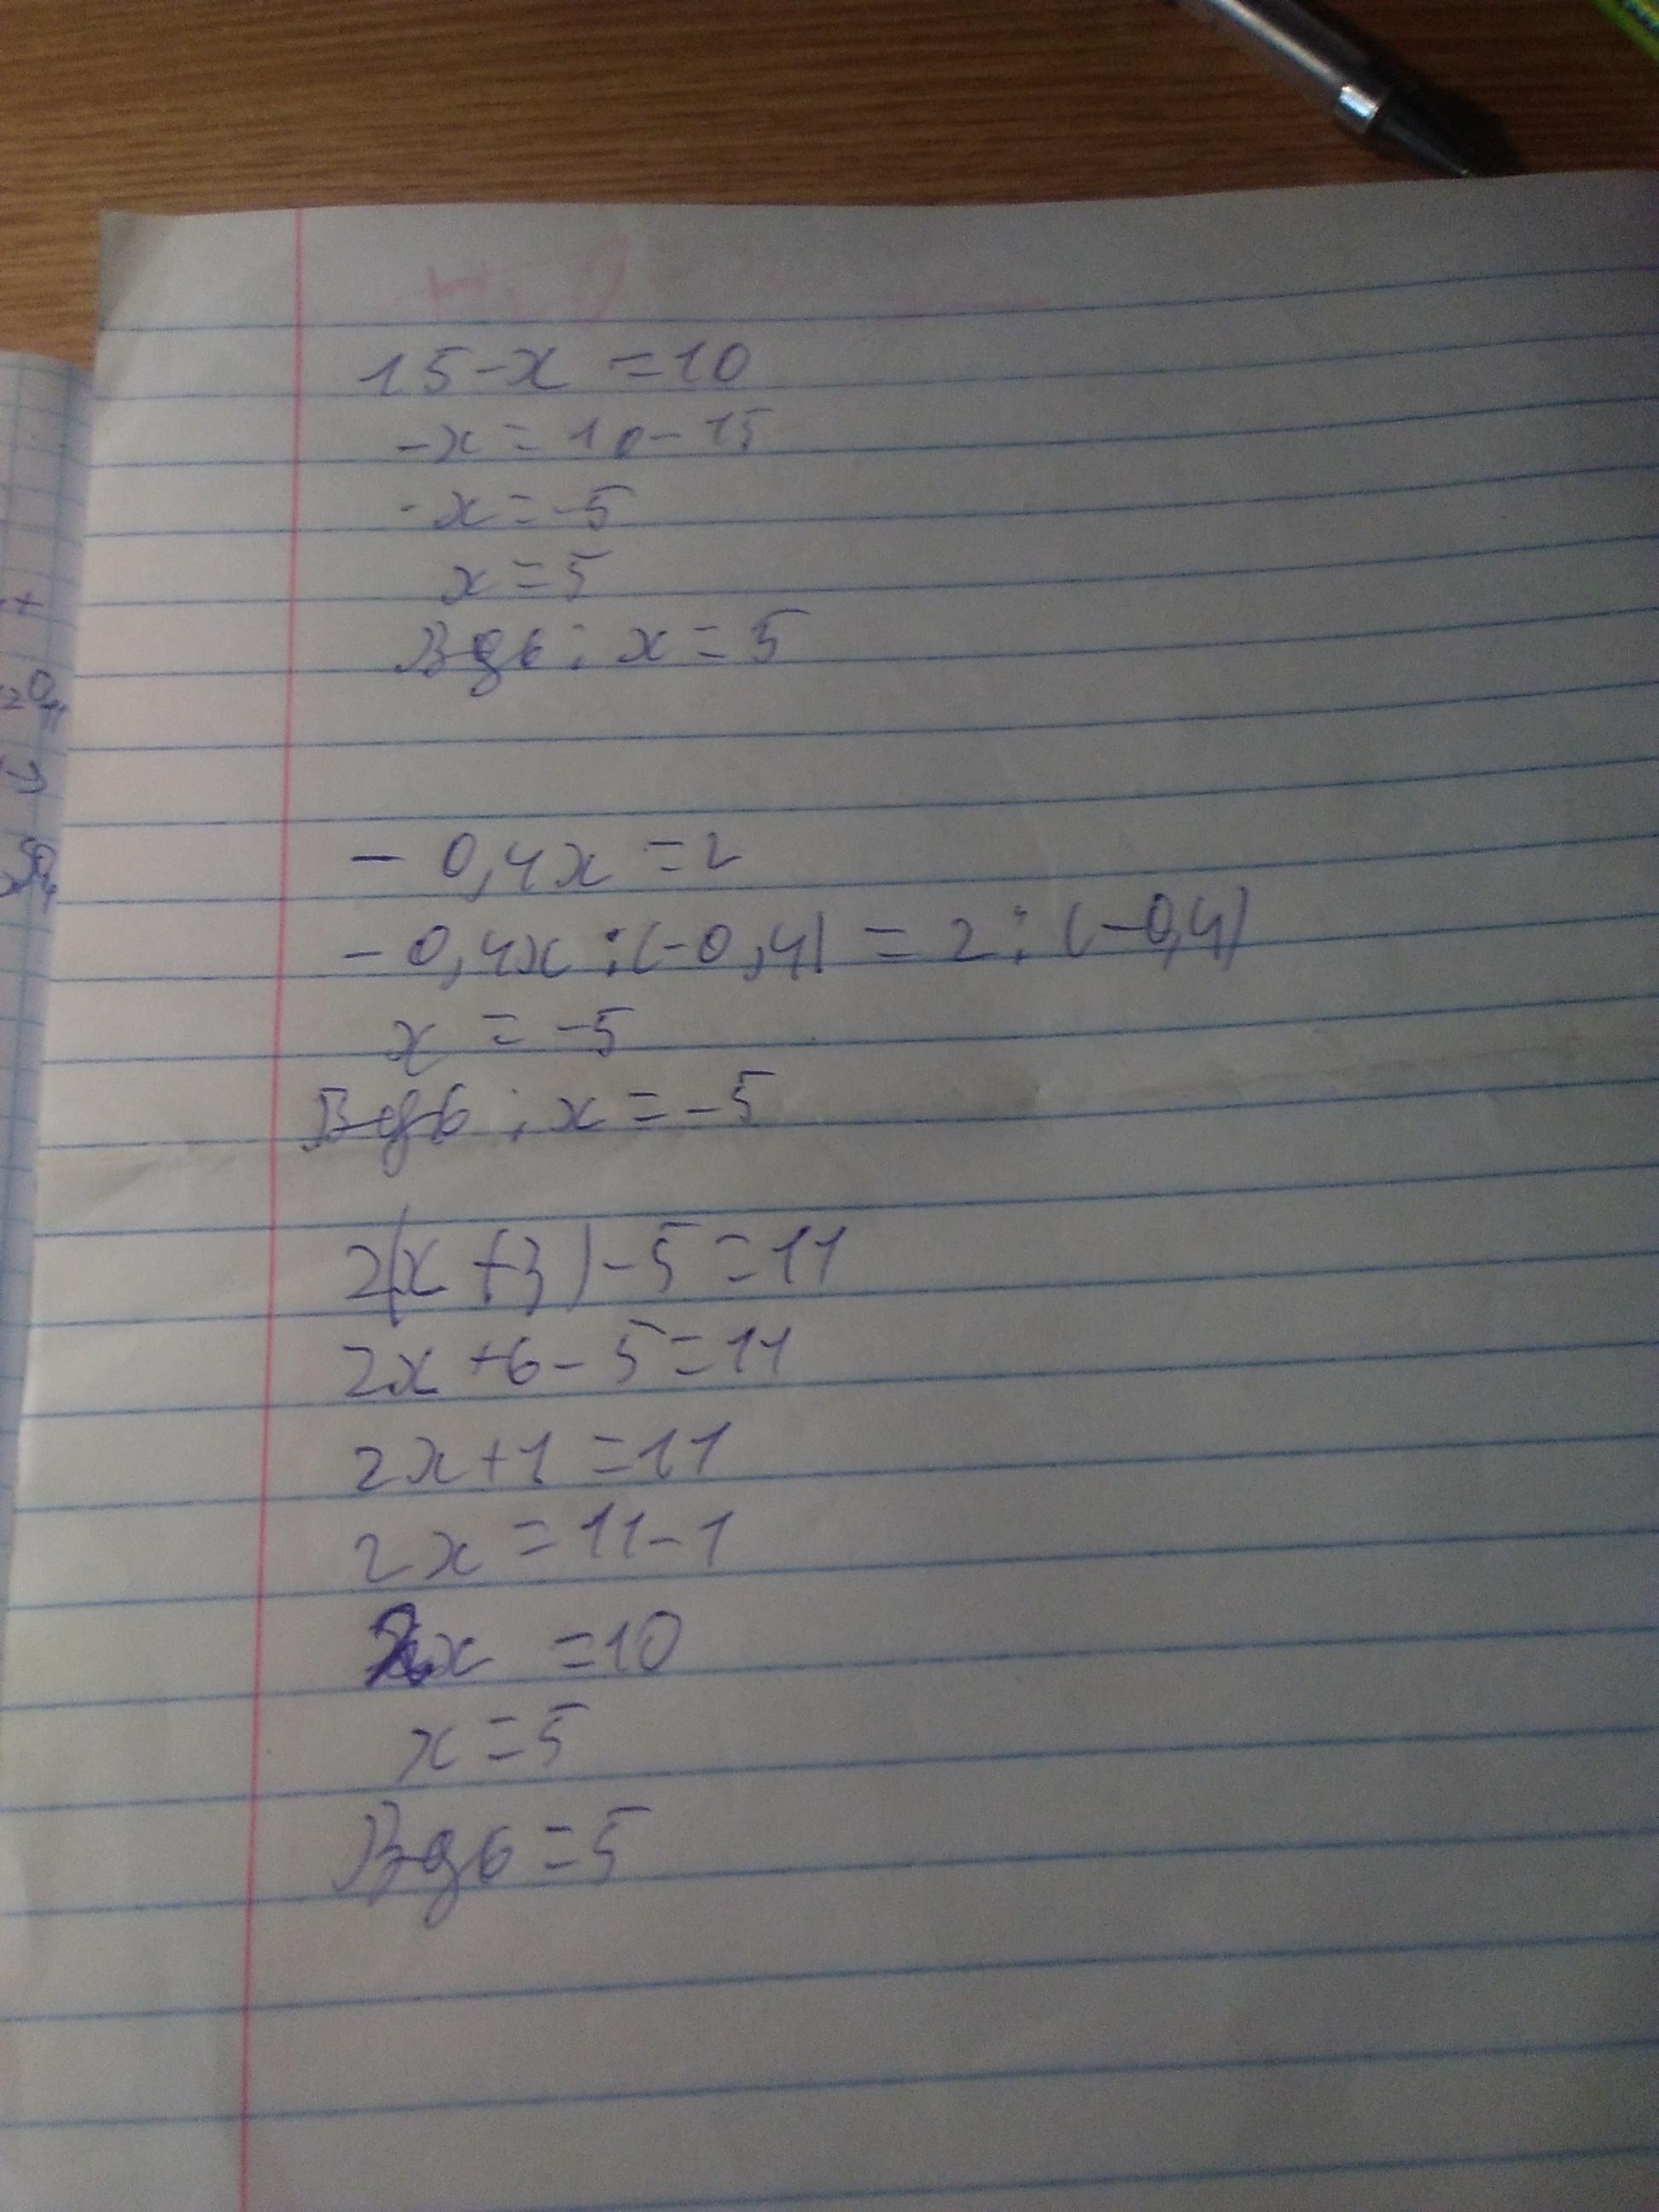 15-x=10
-x=10-15
-x=-5
x=5
Вдб: x=5
-0,4x=2
-0,4x:(-0,4)=2:(-0,4)
x=-5
Вдб: x=-5
2(x+3)-5=11
2x+6-5=11
2x+1=11
2x=11-1
2x=10
x=5
Вдб=5